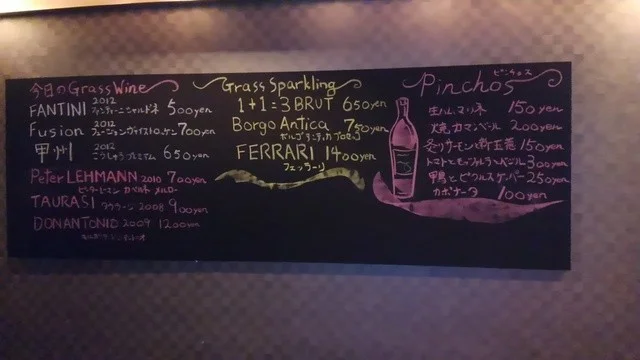 今日のGrassWine
FANTINI 2012 ファンティーニ シャルドネ 500yen
Fusion 2012 700yen
甲州 2012 こうしゅうプレミアム 650yen
Peter LEHMANN 2010 700yen
ピーターレーマン カベルネ メルロー
TAURASI タウラージ 2008 900yen
DON ANTONIO 2009 1200yen
Grass Sparkling
1+1=3 BRUT 650yen
Borgo Antica 750yen
ボルゴアンティカ プロセッコ
FERRARI 1400yen
フェッラーリ
ピンチョス
Pinchos
生ハムマリネ 150yen
焼カマンベール 200yen
炙りサーモンと新玉葱 150yen
トマトとモッツァレラとバジル 300yen
鴨とピクルスケッパー 250yen
カポナータ 100yen